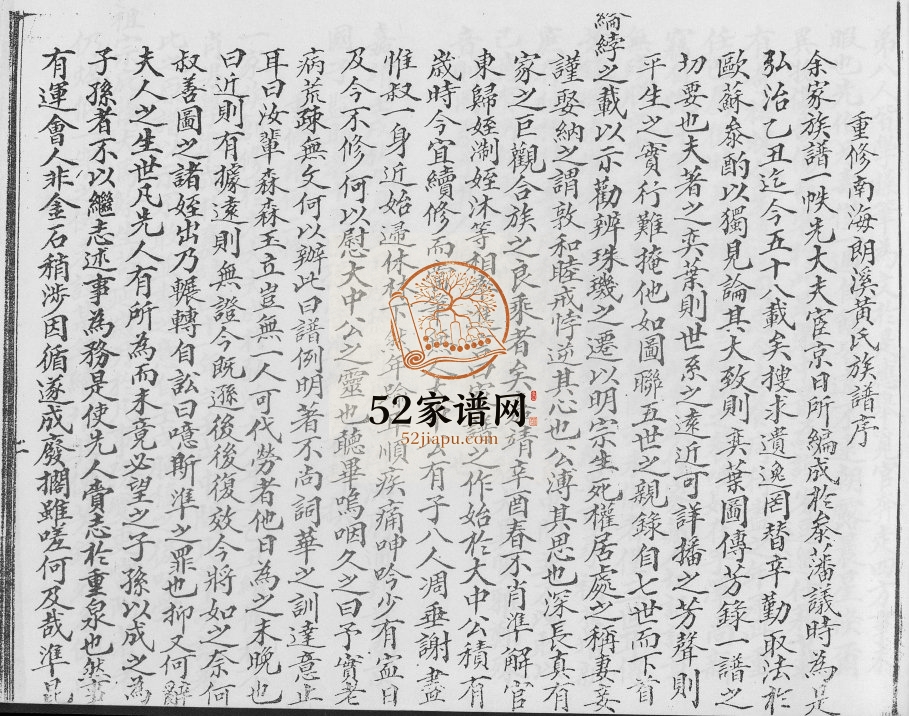 重修南海朗溪黃氏族譜序
余家族譜一帙先大夫宦京日所編成於叅藩議時為是
弘治乙丑迄今五十八載矣搜求遺逸罔替辛勤取法於
歐蘇叅酌以獨見論其大致則奕葉圖傳芳錄一譜之
切要也夫著之奕葉則世系之遠近可詳播之芳聲則
平生之實行難掩他如圖聯五世之親錄自七世而下首
綸綍之載以示勸辨珠璣之遷以明宗生死權居處之稱妻妾
謹娶納之謂敦和睦戒悖逆其心也公溥其思也深長真有
家之巨觀合族之良乘者矣靖辛酉春不肖準解官
東歸姪渊姪沐等相曰之作始於大中公積有
歲時今宜續修而公有子八人凋垂謝盡
惟叔一身近始歸休林下年順疾痛呻吟少有寍日
及今不修何以慰大中公之靈也聽畢嗚咽久之曰予實老
病荒疎無文何以辦此曰譜例明著不尚詞華之訓達意止
耳曰汝輩森森玉立豈無一人可代勞者他日為之未晚也
曰近則有據遠則無證今既遜後後復效今將如之奈何
叔善圖之諸姪出乃輾轉自訟曰噫斯準之罪也抑又何辭
夫人之生世凡先人有所為而未竟必望之子孫以成之為
子孫者不以繼志述事為務是使先人賫志於重泉也然
有運會人非金石稍涉因循遂成廢擱雖嗟何及哉準
52家谱网
52jiapu.com